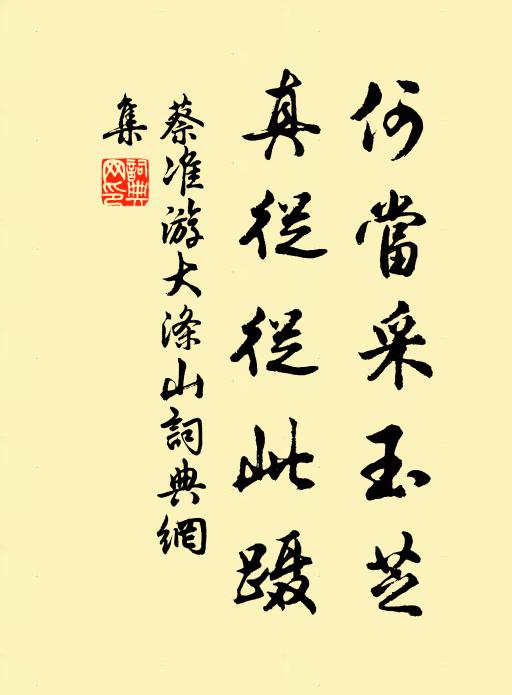 何當采玉芝
真從從此躡
蔡准游大滌山詞典網
集
詞典
网印